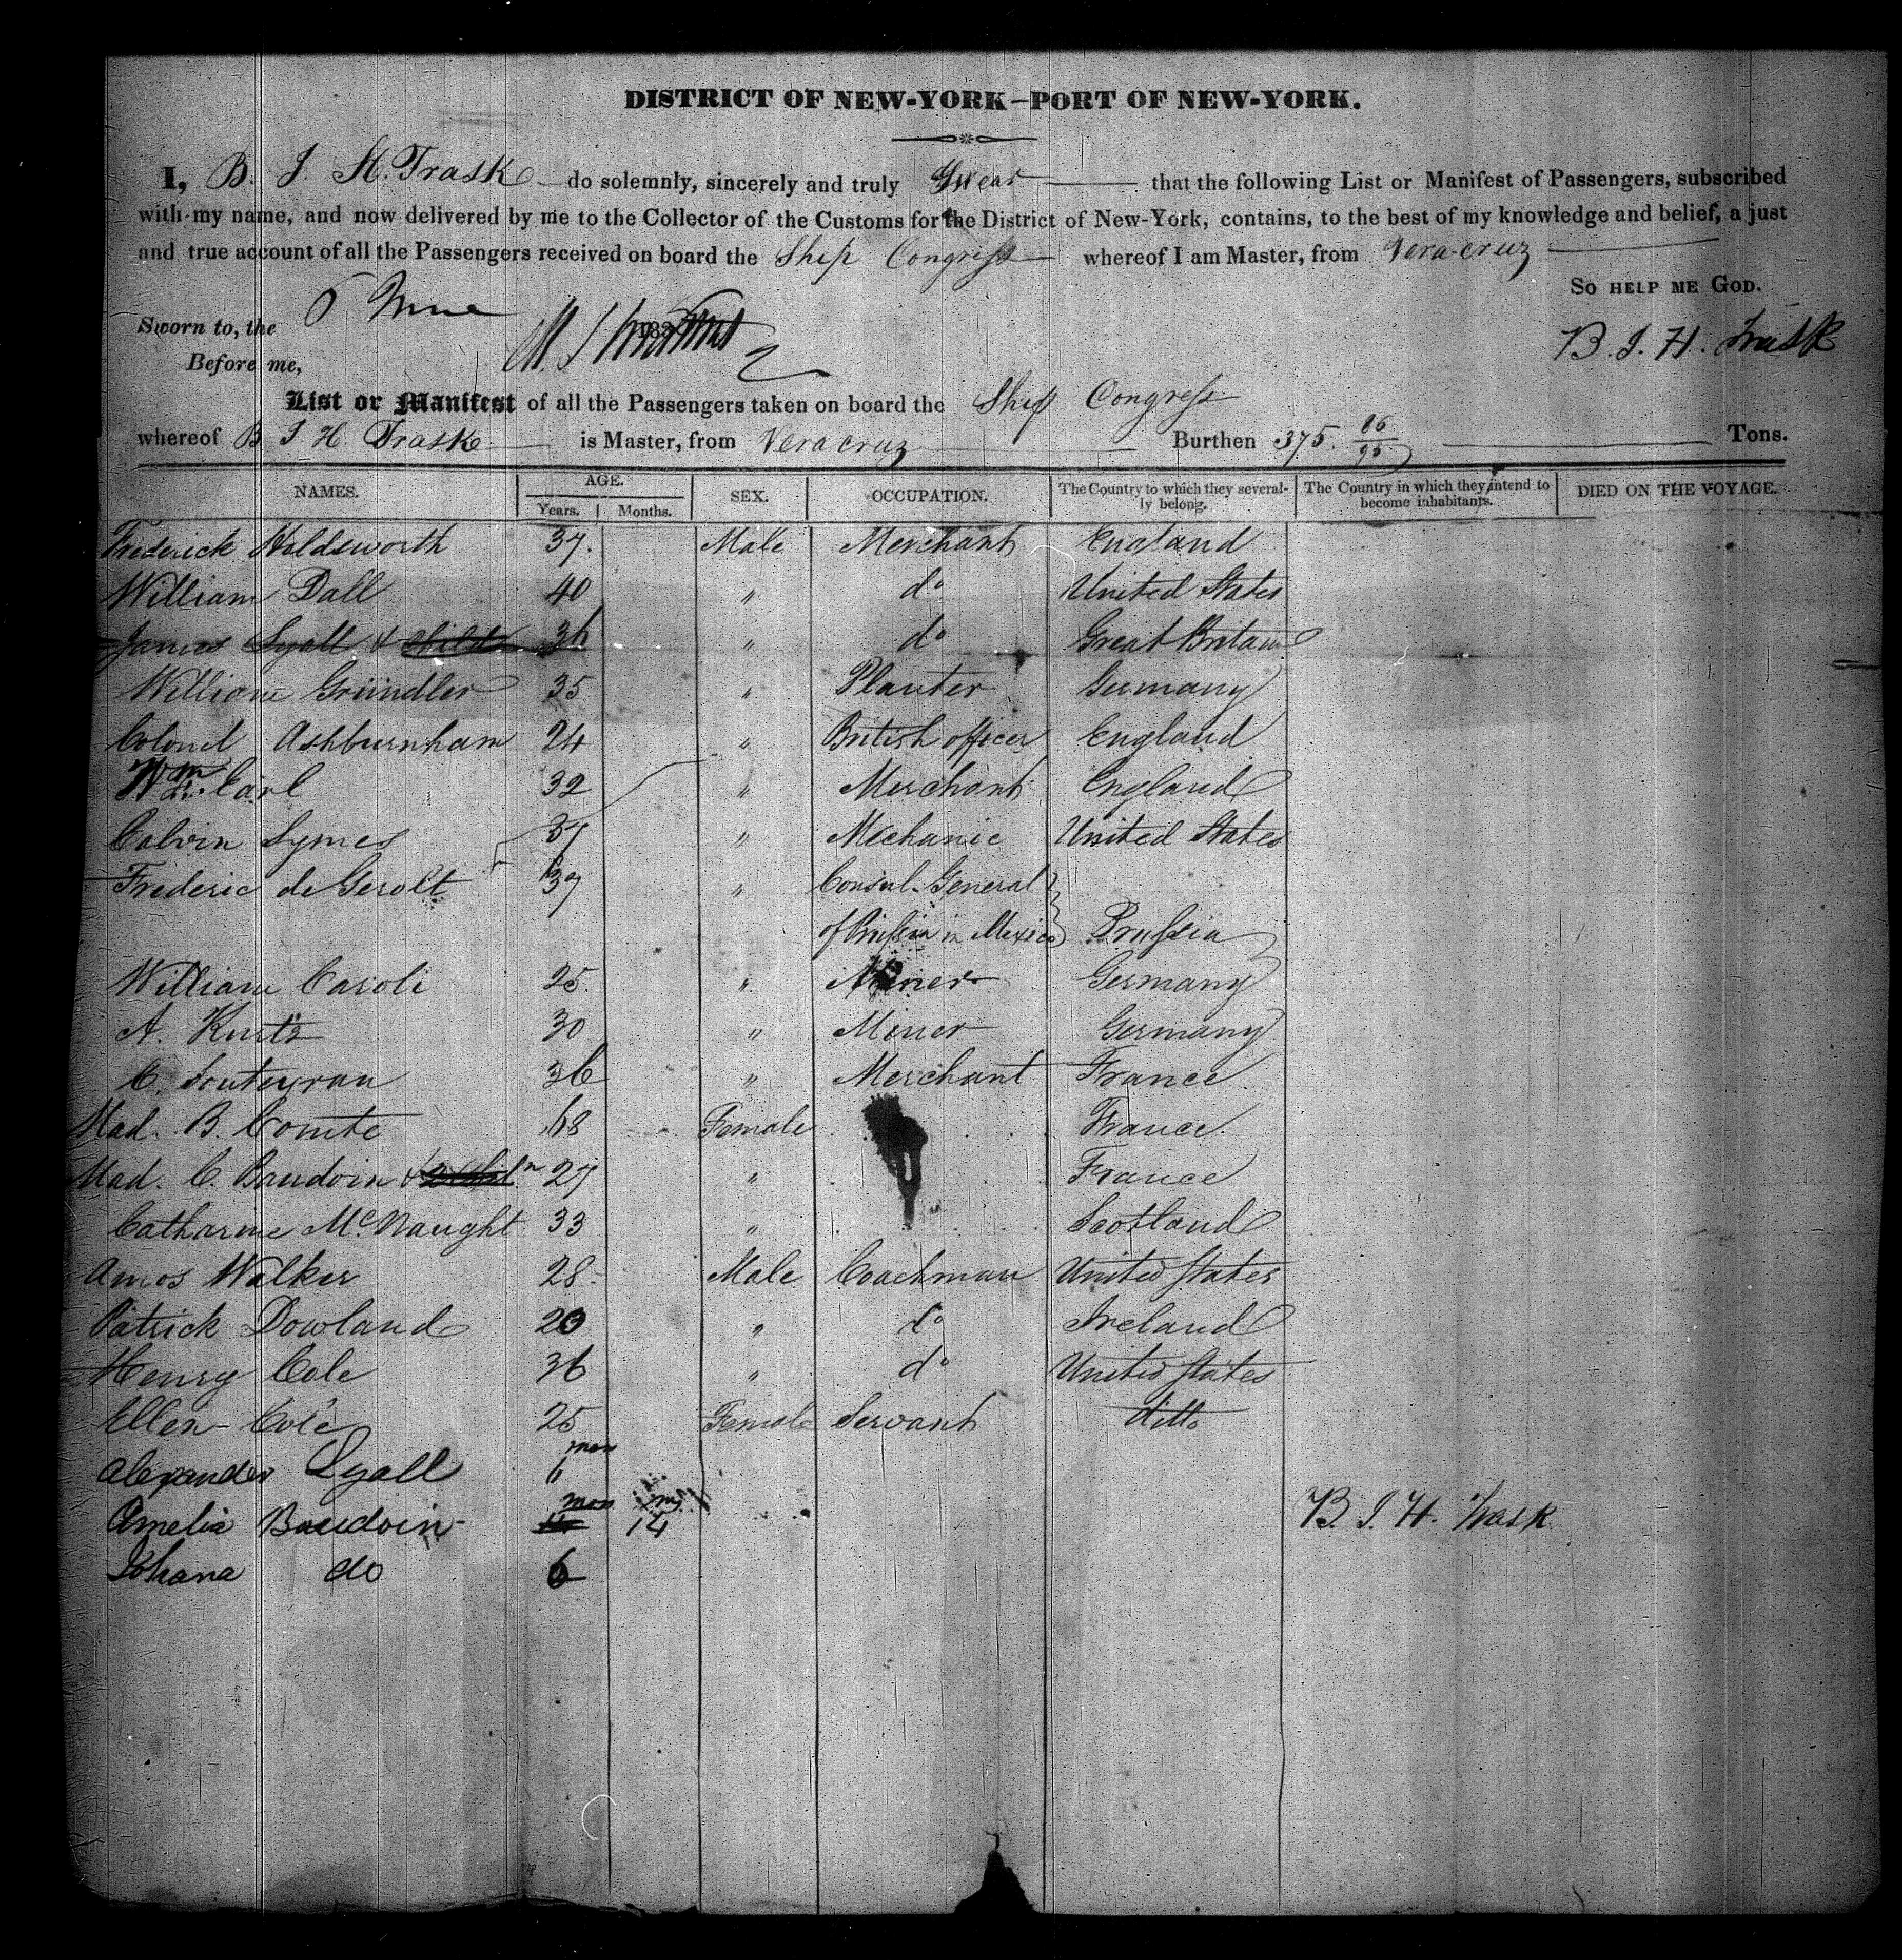 DISTRICT OF NEW-YORK—PORT OF NEW-YORK.
I, B. I. H. Trask do solemnly, sincerely and truly Swear that the following List or Manifest of Passengers, subscribed
with my name, and now delivered by me to the Collector of the Customs for the District of New-York, contains, to the best of my knowledge and belief, a just
and true account of all the Passengers received on board the Ship Congress whereof I am Master, from Vera cruz
So HELP ME GOD.
Sworn to, the 6 June
Before me,
B. I. H. Trask
List or Manifest of all the Passengers taken on board the Ship Congress
whereof B I H. Trask is Master, from Vera cruz Burthen 375. 86/95 Tons.
NAMES. AGE. SEX. OCCUPATION. The Country to which they severally belong. The Country in which they intend to become inhabitants. DIED ON THE VOYAGE.
Years. Months.
Frederick Holdsworth 37. Male Merchant England
William Dall 40 " do United States
James Lyall & child 36 " do Great Britain
William Gründler 35 " Planter Germany
Colonel Ashburnham 24 " British officer England
Wm. Carl 32 " Merchant England
Calvin Symes 37 " Mechanic United States
Frederic de Gerolt 37 " Consul General
of Prussia in Mexico Prussia
William Caroli 25. " Miner Germany
A. Kurtz 30 " Miner Germany
C. Souteyran 36 " Merchant France
Mad. B. Comte 68 Female France
Mad. C. Baudoin & 27 " France
Catharine McNaught 33 " Scotland
Amos Walker 28. Male Coachman United States
Patrick Dowland 20 " do Ireland
Henry Cole 36 " do United States
Ellen Cole 25 Female Servant ditto
Alexander Lyall 6 mos
Amelia Baudoin 14 B. I. H. Trask
do 6